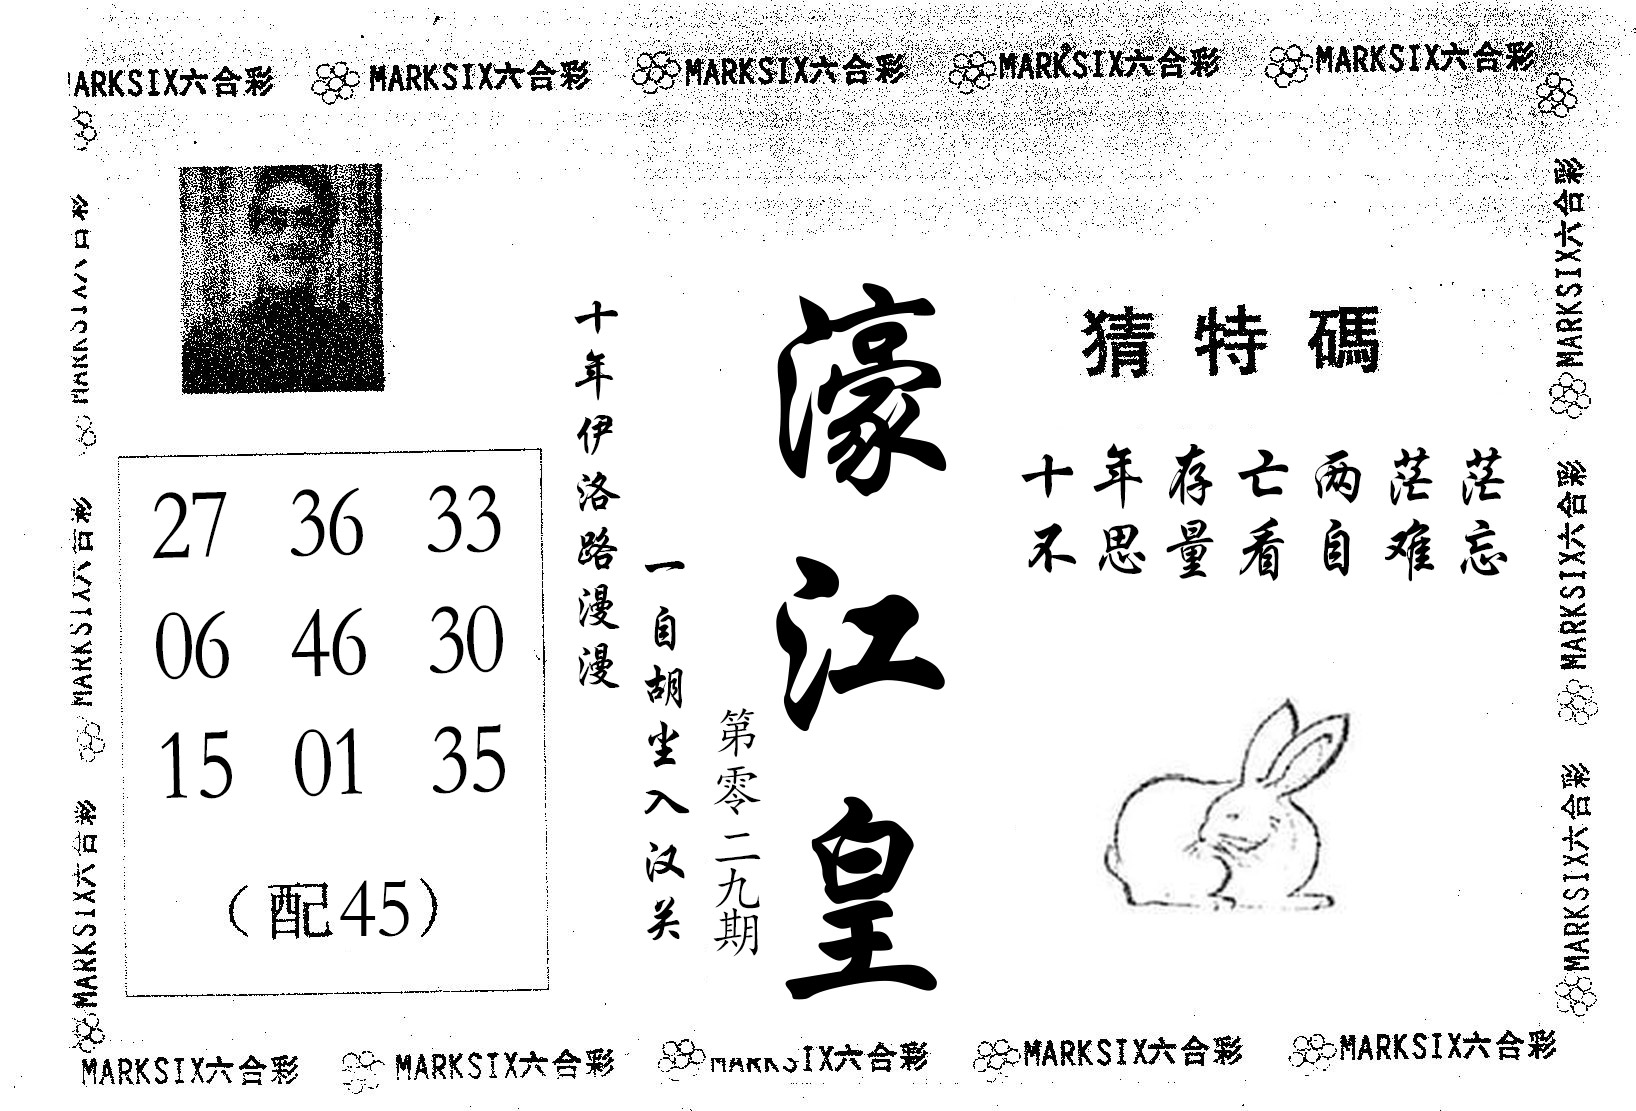 MARKSIX六合彩 MARKSIX六合彩 MARKSIX六合彩 MARKSIX六合彩 MARKSIX六合彩
MARKSIX六合彩
MARKSIX六合彩
MARKSIX六合彩
猜特碼
十年存亡两茫茫
不思量看自难忘
濠江皇
第零二九期
一自胡尘入汉关
十年伊洛路漫漫
27 36 33
06 46 30
15 01 35
（配45）
MARKSIX六合彩
MARKSIX六合彩
MARKSIX六合彩
MARKSIX六合彩 MARKSIX六合彩 MARKSIX六合彩 MARKSIX六合彩 MARKSIX六合彩